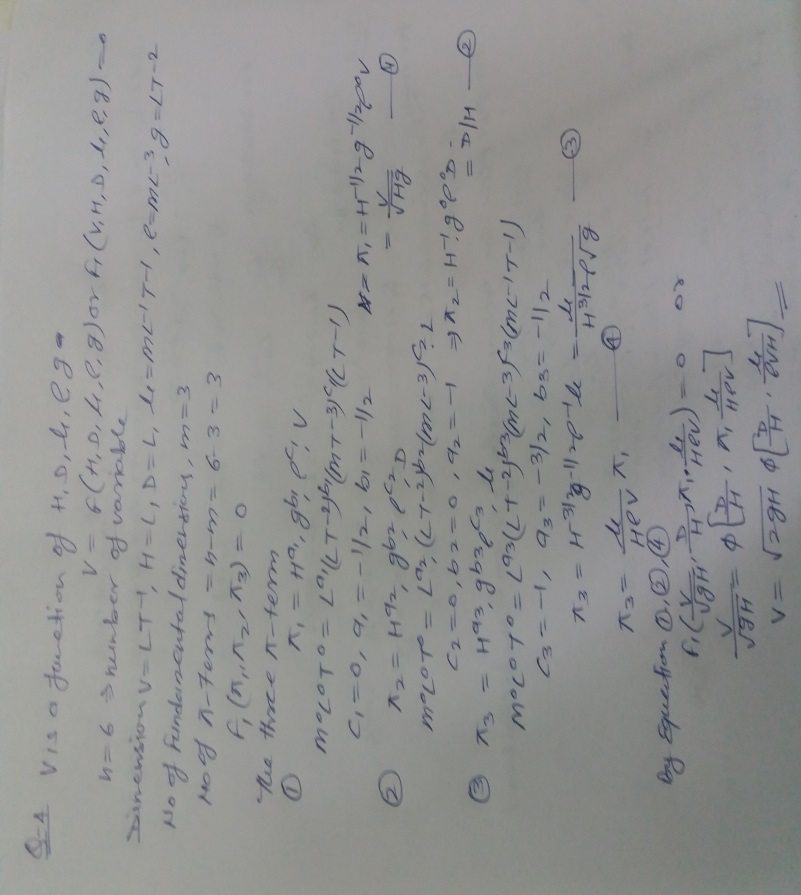 Q-4 V is a function of H, D, μ, ρ, g
V = f(H, D, μ, ρ, g) or f1(V, H, D, μ, ρ, g) = 0
n=6 ⇒ number of variable
Dimension V=LT-1, H=L, D=L, μ=mL-1T-1, ρ=mL-3, g=LT-2
No of fundamental dimension, m=3
No of π-terms = n-m = 6-3 = 3
f1(π1, π2, π3) = 0
The three π-term
① π1 = Ha1, gb1, ρc1, V
m0L0T0 = La1(LT-2)b1(mT-3)c1(LT-1)
c1=0, a1=-1/2, b1=-1/2 π1 = H-1/2 g-1/2 ρ0 V
= V/√Hg —— ①
② π2 = Ha2, gb2 ρc2, D
m0L0T0 = La2, (LT-2)b2(mL-3)c2, L
c2=0, b2=0, a2=-1 ⇒ π2 = H-1, g0 ρ0 D.
= D/H —— ②
③ π3 = Ha3, gb3 ρc3, μ
M0L0T0 = La3(LT-2)b3(mL-3)c3(mL-1T-1)
c3=-1, a3=-3/2, b3=-1/2
π3 = H-3/2 g-1/2 ρ-1 μ = μ/H3/2 ρ√g —— ③
π3 = μ/Hρv π1 —— ④
By Equation ①, ②, ④
f1(V/√gH, D/H, π1, μ/Hρv) = 0 or
V/√gH = φ[D/H, π1 μ/Hρv]
V = √2gH φ[D/H, μ/ρvH]